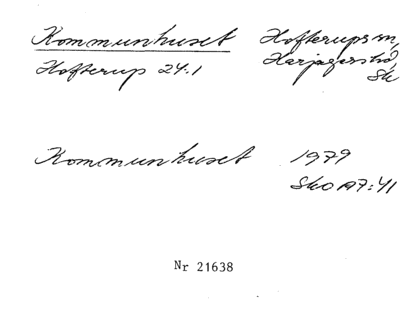 Kommunhuset Hofterups sn,
Hofterup 24:1 Harjagers hd,
Sk
Kommunhuset 1979
Sko A7:41
Nr 21638